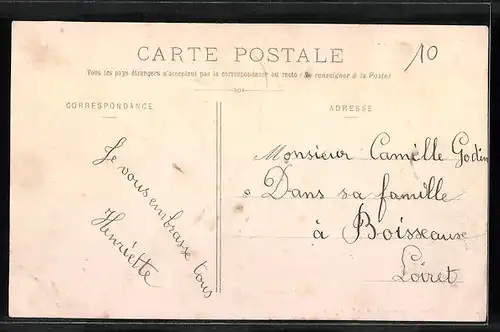 CARTE POSTALE
10
Tous les pays étrangers n'acceptent pas la correspondance au recto (Se renseigner à la Poste)
CORRESPONDANCE
Je vous embrasse tous
Henriette
ADRESSE
Monsieur Camille Godin
Dans sa famille
à Boisseaux
Loiret